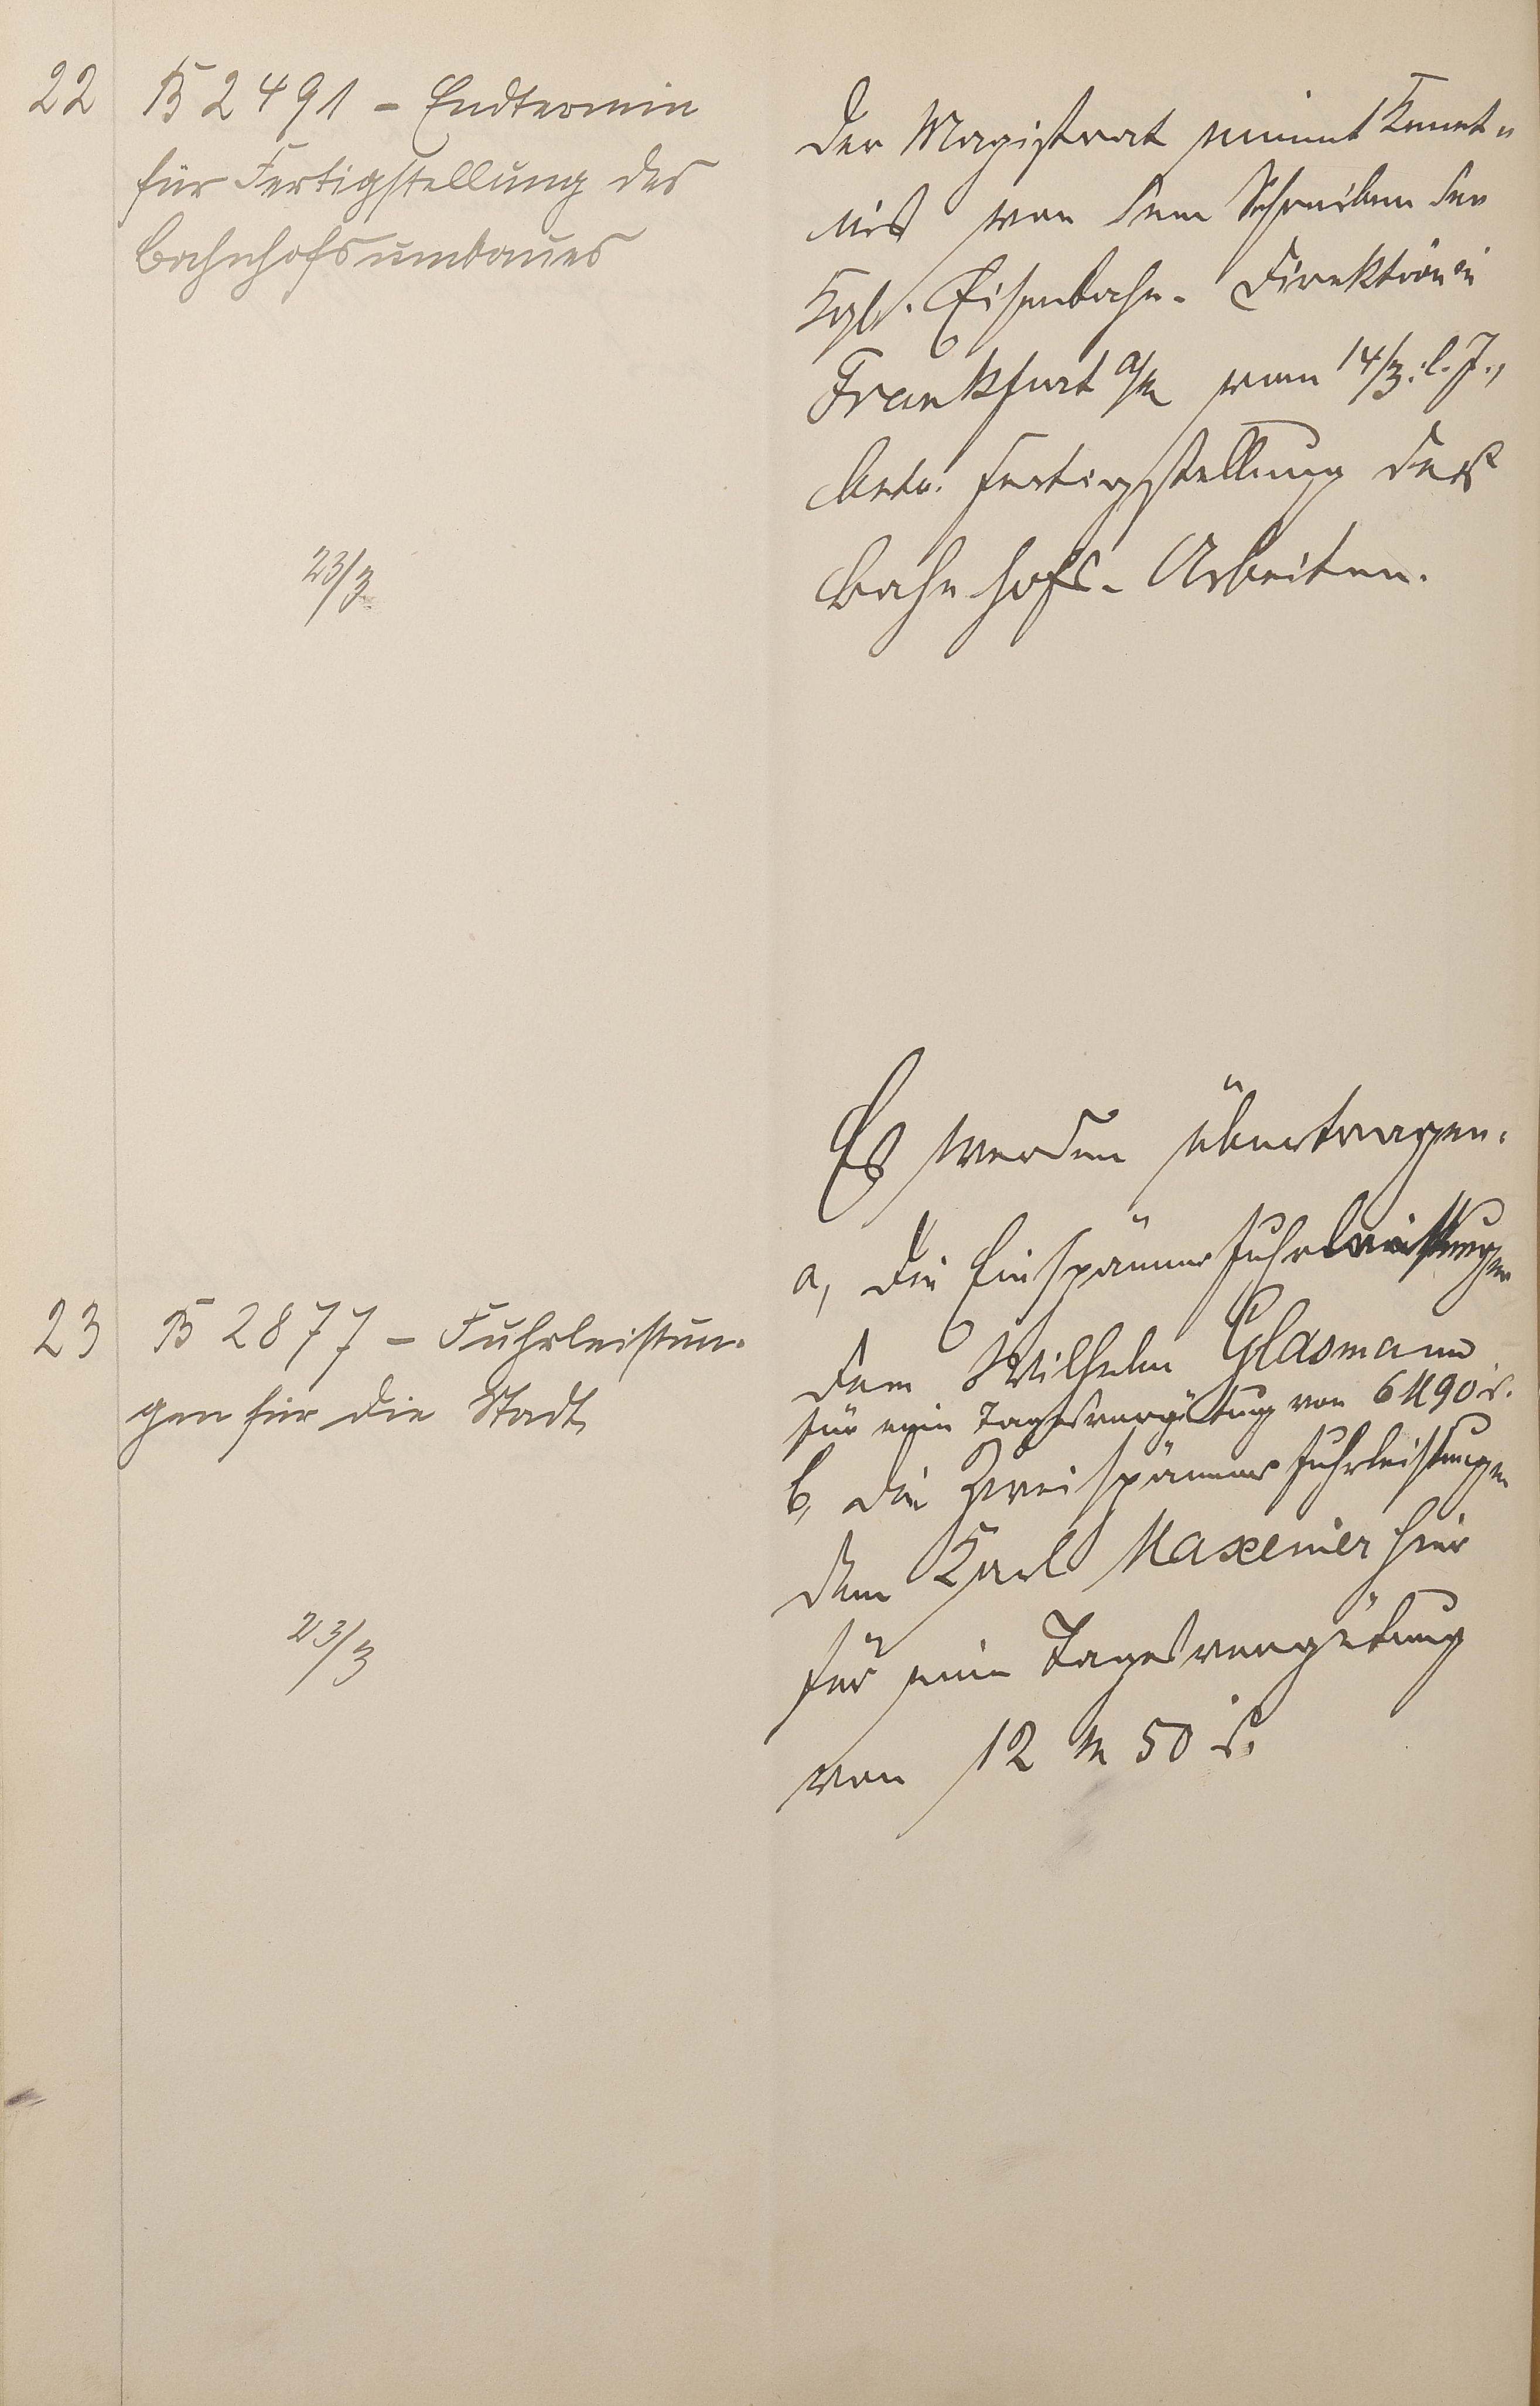 22
B 2491 - Endtermin
für Fertigstellung des
Bahnhofsumbaues
23/3
Der Magistrat nimmt Kennt-
nis von dem Schreiben der
Kgl. Eisenbahn-Direktion in
Frankfurt a/M vom 14/3. l. J.,
betr. Fertigstellung der
Bahnhofs-Arbeiten.
23
B 2877 - Fuhrleistun-
gen für die Stadt
23/3
Es werden übertragen.
a, die Einspänner Fuhrleistungen
dem Wilhelm Glasmann
für eine Tagesvergütung von 6 M 90 d.
b, die Zweispänner Fuhrleistungen
dem Karl Maxeiner hier
für eine Tagesvergütung
von 12 M 50 d.